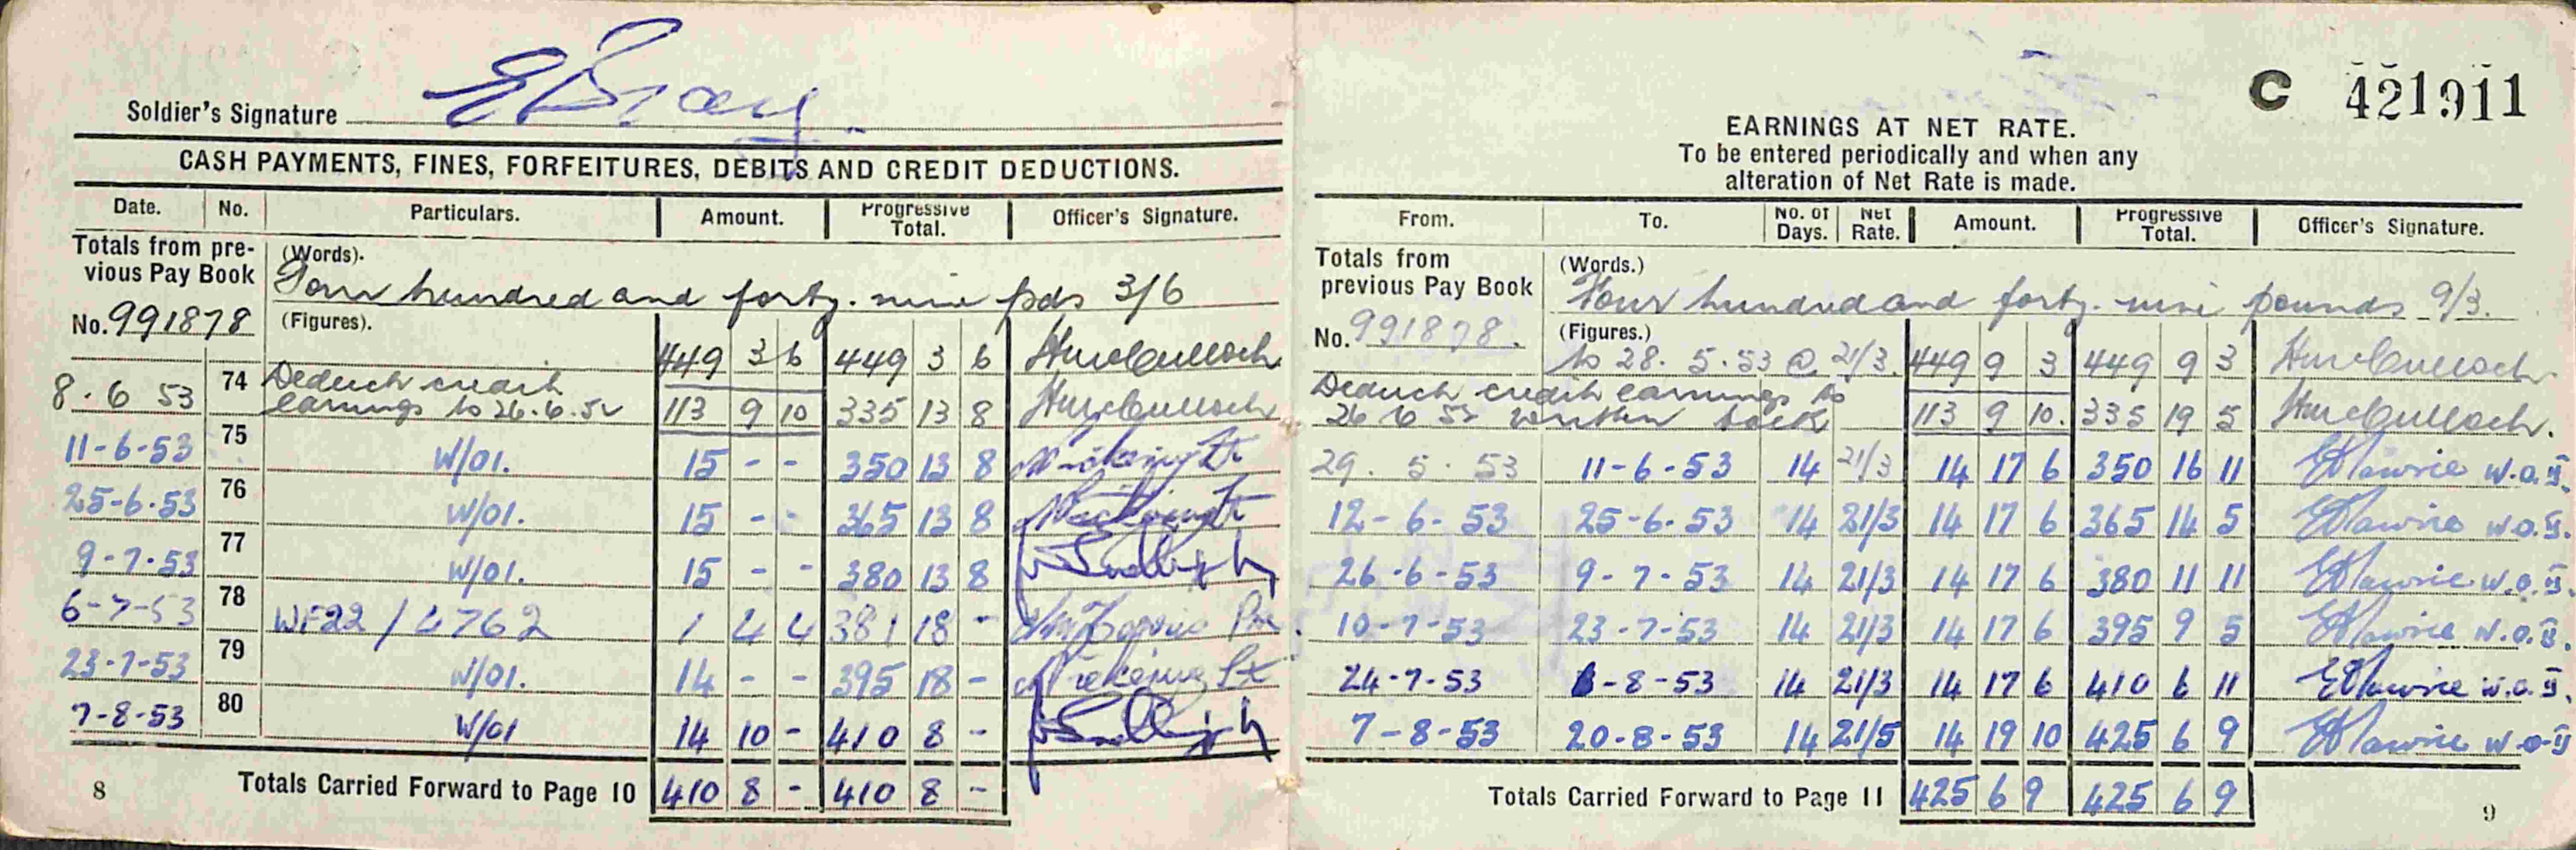 Soldier's Signature E Bray
CASH PAYMENTS, FINES, FORFEITURES, DEBITS AND CREDIT DEDUCTIONS.
Date. No. Particulars. Amount. Progressive Total. Officer's Signature.
Totals from previous Pay Book (Words).
Four hundred and forty-nine pds 3/6
No. 991878 (Figures).
449 3 6 449 3 6
8.6 53 74 Deduct credit earnings to 26.6.52 113 9 10 335 13 8
11-6-53 75 W/01. 15 - - 350 13 8
25-6-53 76 W/01. 15 - - 365 13 8
9-7-53 77 W/01. 15 - - 380 13 8
6-7-53 78 WF22 / 4762 1 4 4 381 18 -
23-7-53 79 W/01. 14 - - 395 18 -
7-8-53 80 W/01 14 10 - 410 8 -
8 Totals Carried Forward to Page 10 410 8 - 410 8 -
C 421911
EARNINGS AT NET RATE.
To be entered periodically and when any
alteration of Net Rate is made.
From. To. No. of Days. Net Rate. Amount. Progressive Total. Officer's Signature.
Totals from previous Pay Book (Words.)
Four hundred and forty-nine pounds 9/3.
No. 991878. (Figures.)
to 28.5.53 @ 21/3. 449 9 3 449 9 3
Deduct credit earnings to
26 6 52 written back 113 9 10. 335 19 5
29. 5. 53 11-6-53 14 21/3 14 17 6 350 16 11 W.O.II.
12-6-53 25-6-53 14 21/3 14 17 6 365 14 5 W.O.II.
26-6-53 9-7-53 14 21/3 14 17 6 380 11 11 W.O.II.
10-7-53 23-7-53 14 21/3 14 17 6 395 9 5 W.O.II.
24-7-53 6-8-53 14 21/3 14 17 6 410 6 11 W.O.II
7-8-53 20-8-53 14 21/5 14 19 10 425 6 9 W.O-II
Totals Carried Forward to Page 11 425 6 9 425 6 9
9